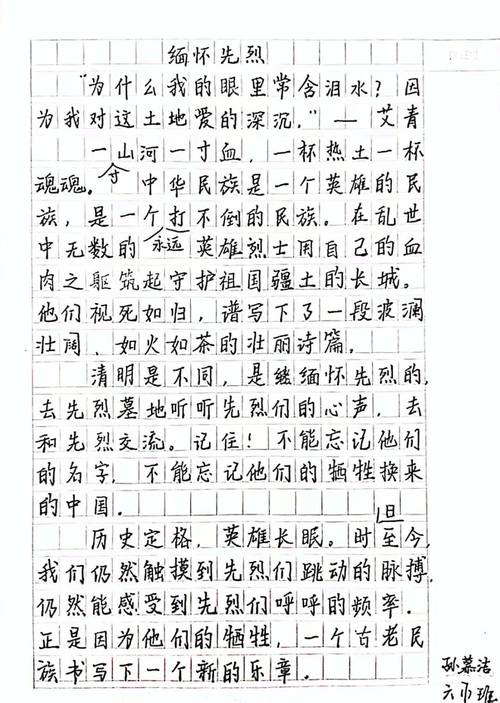 缅怀先烈
“为什么我的眼里常含泪水？因
为我对这土地爱的深沉。”—艾青
一山河一寸血，一杯热土一杯
寸
魂魂。中华民族是一个英雄的民
族，是一个打不倒的民族。在乱世
中无数的永远英雄烈士用自己的血
肉之驱筑起守护祖国疆土的长城。
他们视死如归，谱写下了一段波澜
壮阔、如火如荼的壮丽诗篇。
清明是不同，是缅怀先烈的，
去先烈墓地听听先烈们的心声，去
和先烈交流。记住！不能忘记他们
的名字，不能忘记他们的牺牲换来
的中国。
但
历史定格，英雄长眠。时至今，
我们仍然触摸到先烈们跳动的脉搏，
仍然能感受到先烈们呼呼的频率。
正是因为他们的牺牲，一个古老民
族书写下一个新的乐章。
孙慕洁
六 班